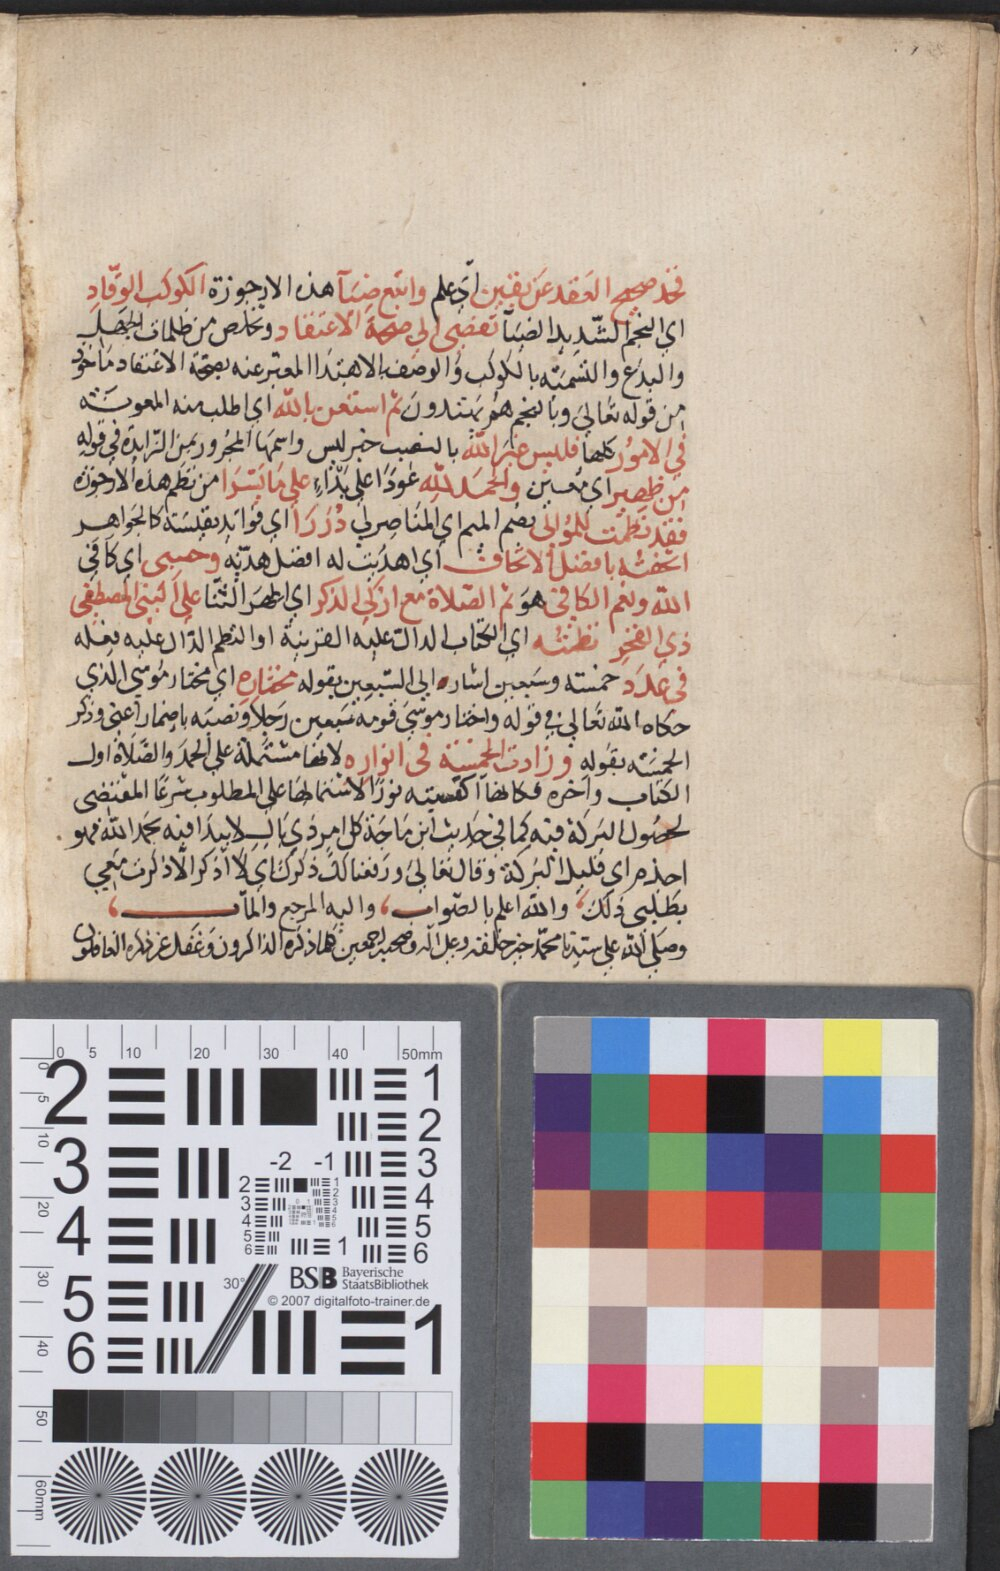 فخذ صحيح العقد عن يقين أي علم واتبع ضيآ هذه الارجوزة الكوكب الوقّادِ
اي النجم الشديد الضيآ تفضى الى صحة الاعتقاد وتخلص من ظلمات الجهل
والبدع والتسمية بالكوكب والوصف بالاهتدا المعبر عنه بصحة الاعتقاد مأخوذ
من قوله تعالى وبالنجم هم يهتدون ثم استعن بالله اي اطلب منه المعونة
في الامور كلها فليس غير الله بالنصب خبر ليس واسمها المجرور بمن الزايدة في قوله
من ظهير اي معين والحمد لله عودا على بدْءٍ على ما يسّرا من نظم هذه الارجوزة
فقد نظمت للمُوالى بضم الميم اي المناصر لي دُرَرَا اي فوائد نفيسة كالجواهر
اتحفته بافضل الاتحاف أي اهديت له افضل هديّه وحسبى اي كافي
الله ونعم الكافى هو ثم الصلاة مع ازكى الذكر اي اطهر الثنا على النبى المصطفى
ذي الفخر نظمته اي الكتاب الدالة عليه القرينة او النظم الدال عليه فعله
فى عدد خمسة وسبعين اشار الى السبعين بقوله مختاره اي مختار موسى الذي
حكاه الله تعالى في قوله واختار موسى قومه سبعين رجلا ونصبه باضمار اعني وذكر
الخمسة بقوله وزادت الخمسة فى انواره لانها مشتملة على الحمد والصلاة اول
الكتاب وآخره فكانها اكسبته نورًا لاشتمالها على المطلوب شرعًا المقتضى
لحصول البركة فيه كما في حديث ابن ماجة كل امر ذي بال لا يبدا فيه بحمد الله فهو
اجذم اي قليل البركة وقال تعالى ورفعنا لك ذكرك اي لا اذكر الا ذكرت معي
بطلبى ذلك والله اعلم بالصواب واليه المرجع والمآب
وصلى الله على سيدنا محمد خير خلقه وعلى اله وصحبه اجمعين كلما ذكره الذاكرون وغفل عن ذكره الغافلون
0 5 10 20 30 40 50mm
0 5 10 20 30 40 50 60mm
2 3 4 5 6
1 2 3 4 5 6
-2 -1
2 3 4 5 6
1
30°
BSB Bayerische
StaatsBibliothek
© 2007 digitalfoto-trainer.de
1